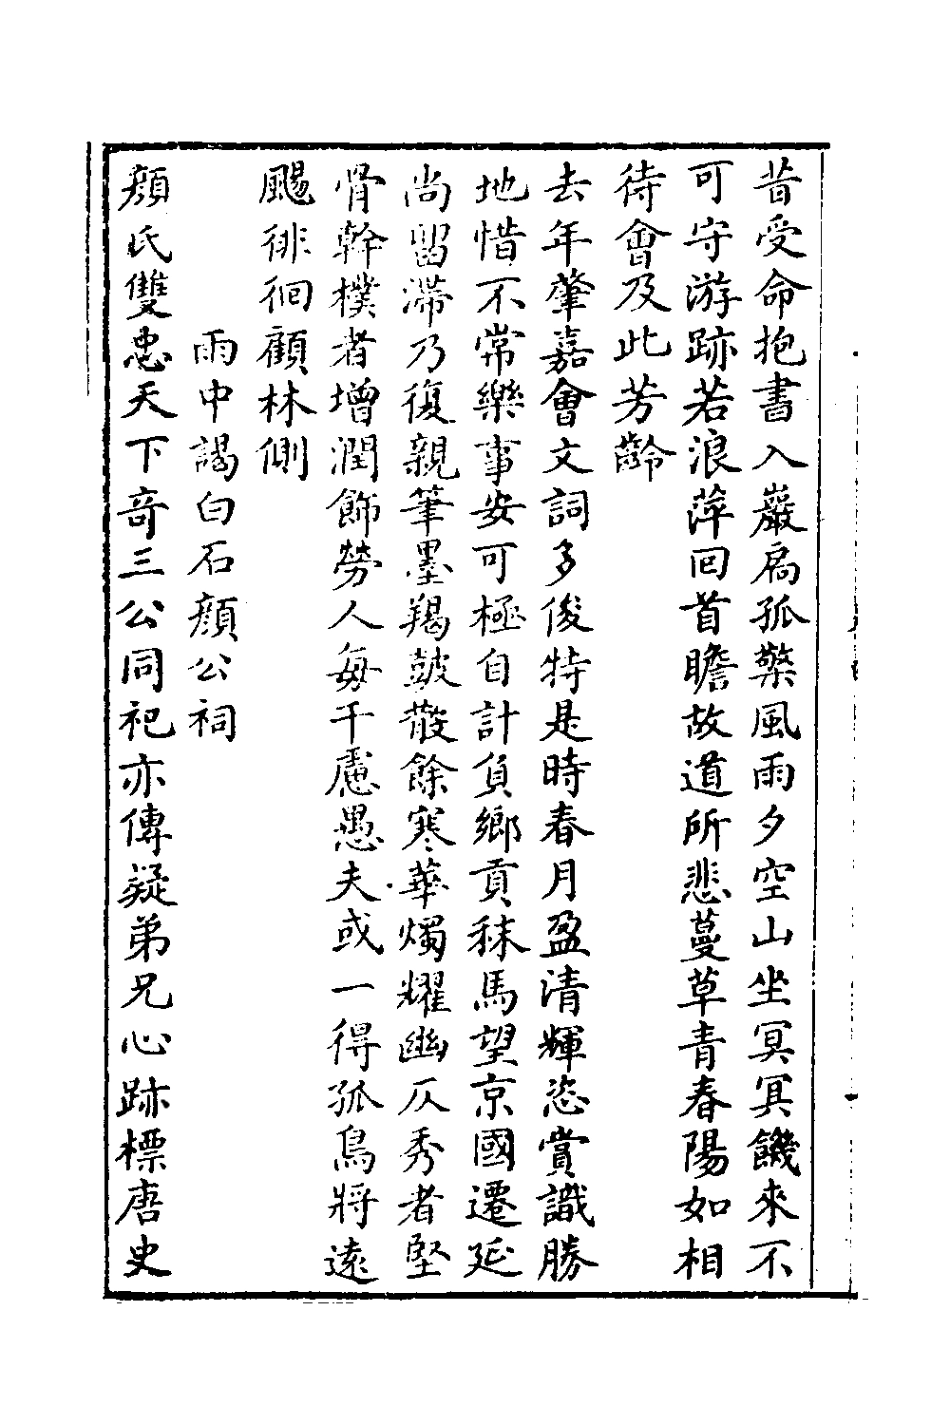 昔受命抱書入巖扃孤檠風雨夕空山坐冥冥饑來不
可守游跡若浪萍回首瞻故道所悲蔓草青春陽如相
待會及此芳齡
去年肇嘉會文詞多俊特是時春月盈清輝恣賞識勝
地惜不常樂事安可極自計負鄉貢秣馬望京國遷延
尚留滯乃復親筆墨羯鼓散餘寒華燭耀幽仄秀者堅
骨幹樸者增潤飾勞人每千慮愚夫或一得孤鳥將遠
颺徘徊顧林側
雨中謁白石顏公祠
顏氏雙忠天下奇三公同祀亦傳疑弟兄心跡標唐史